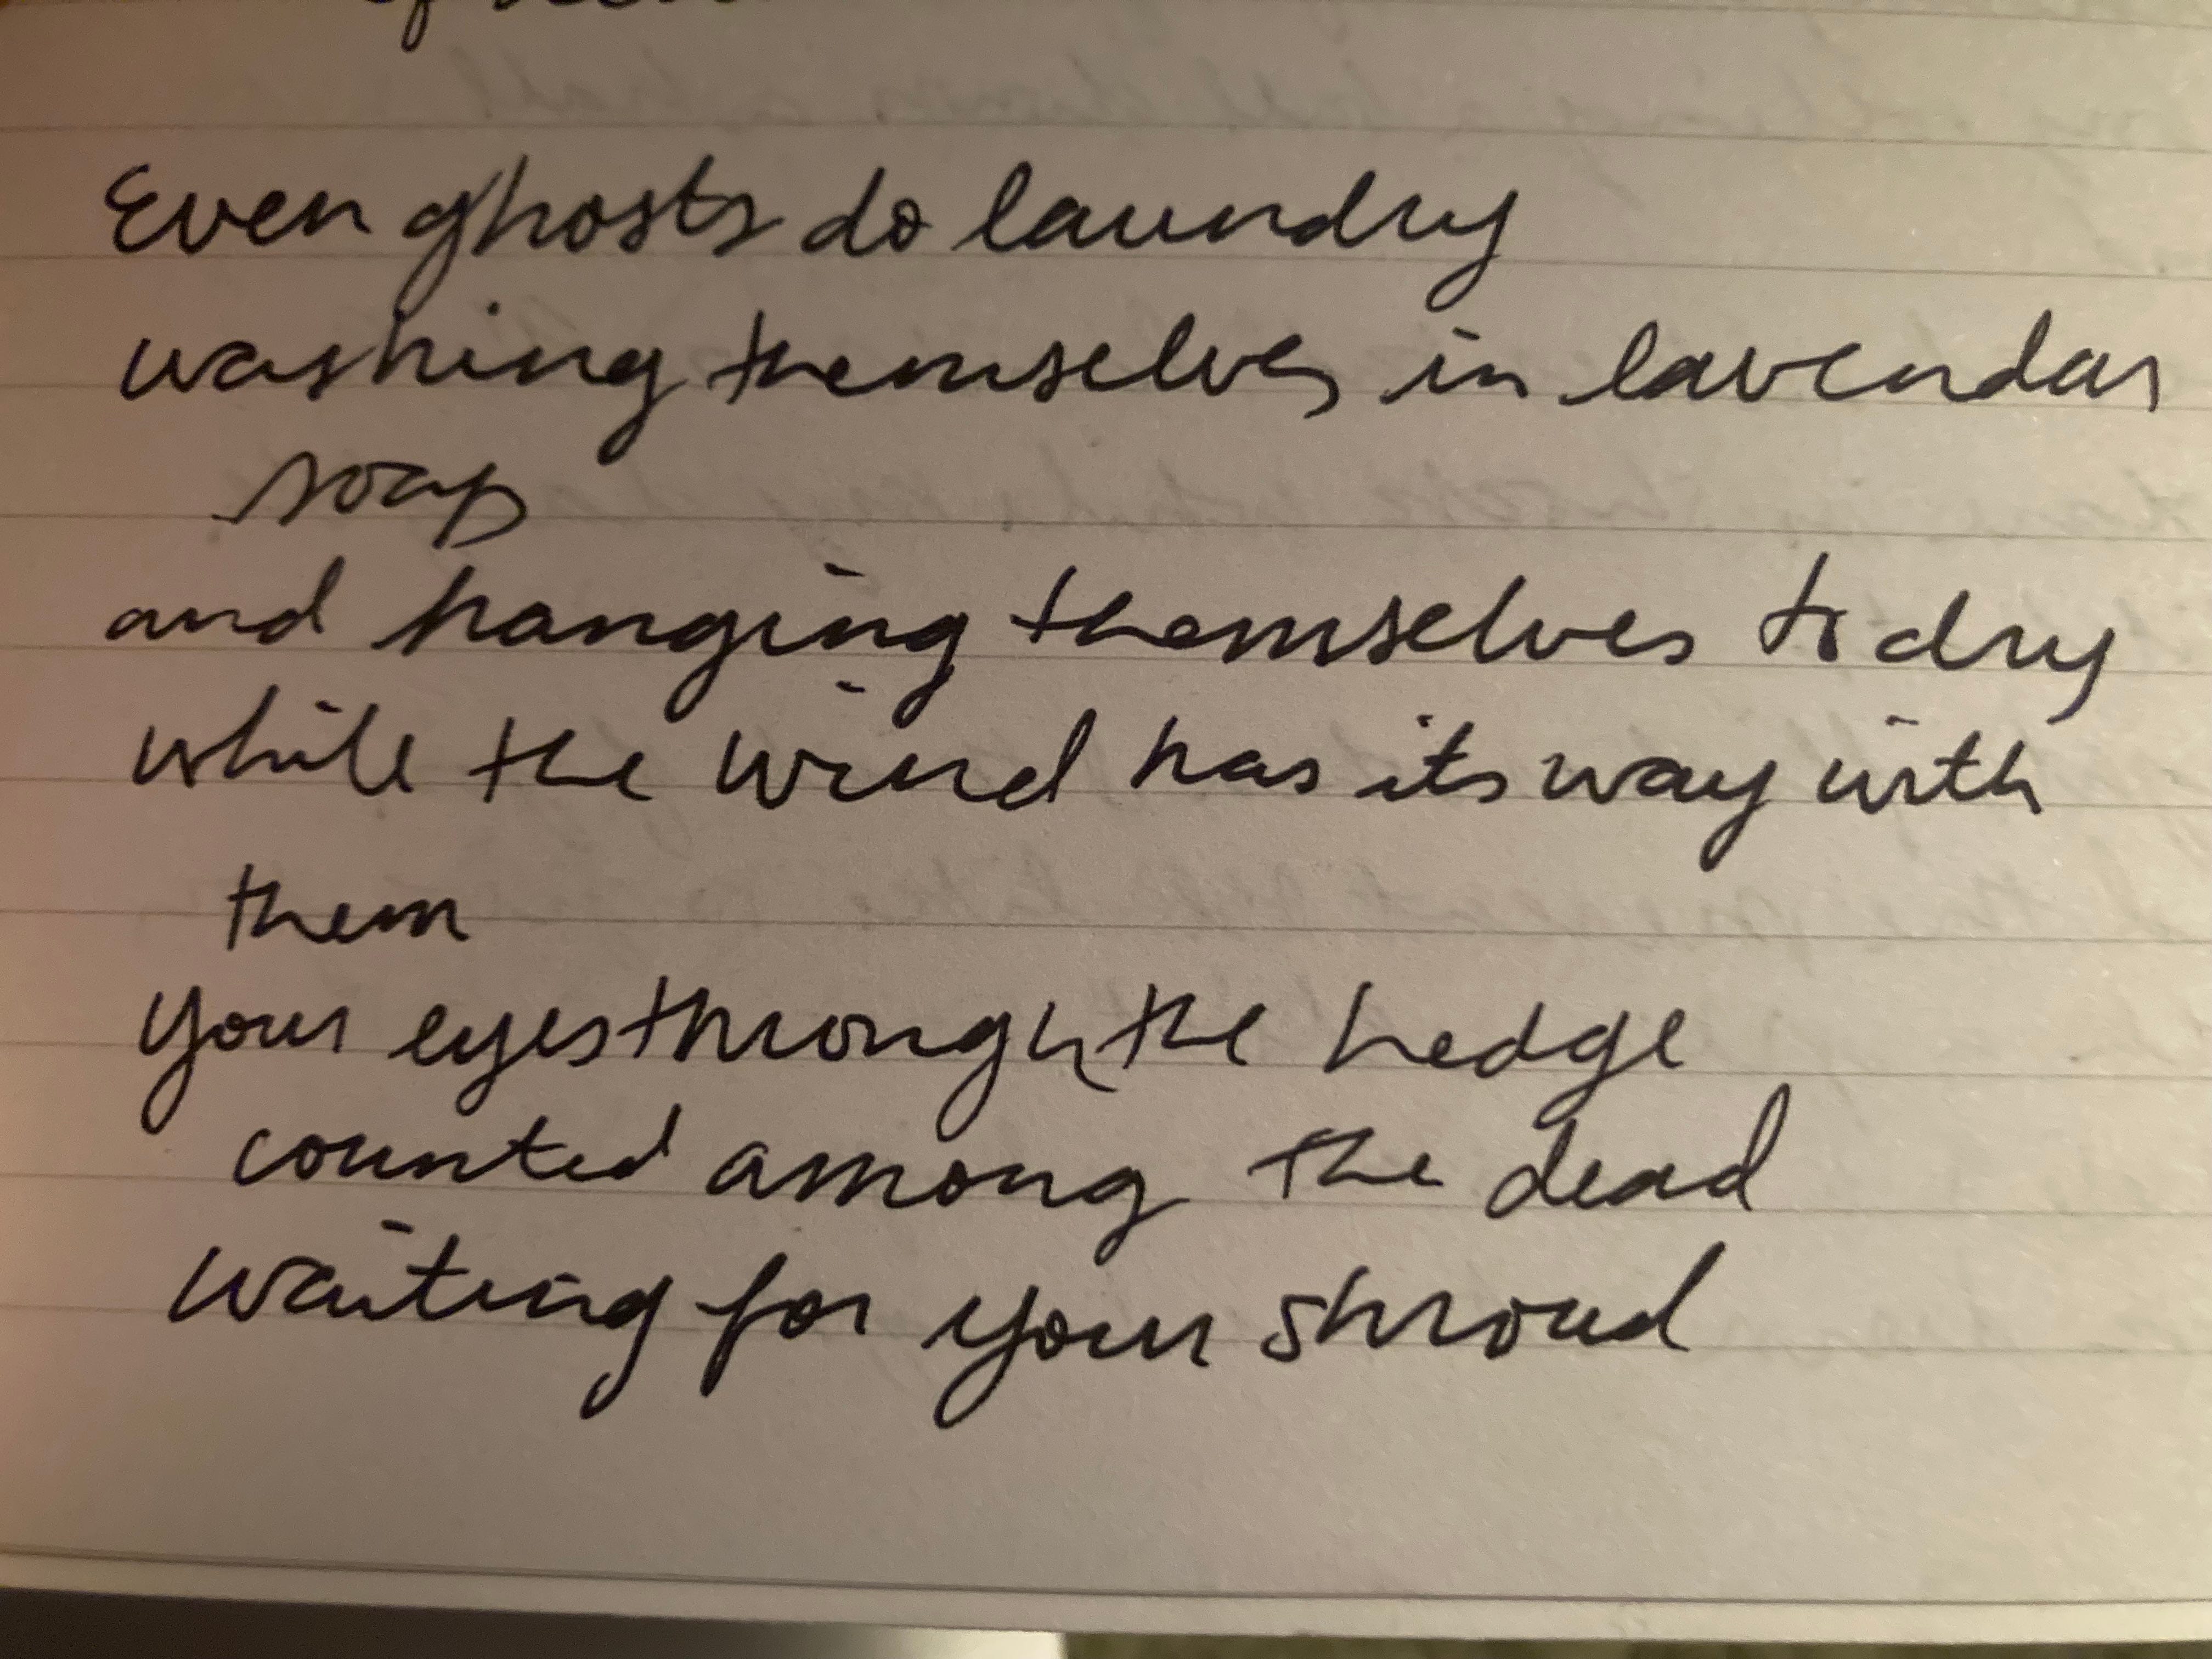 Even ghosts do laundry
washing themselves in lavendar
soap
and hanging themselves to dry
while the wind has its way with
them
your eyes through the hedge
counted among the dead
waiting for your shroud